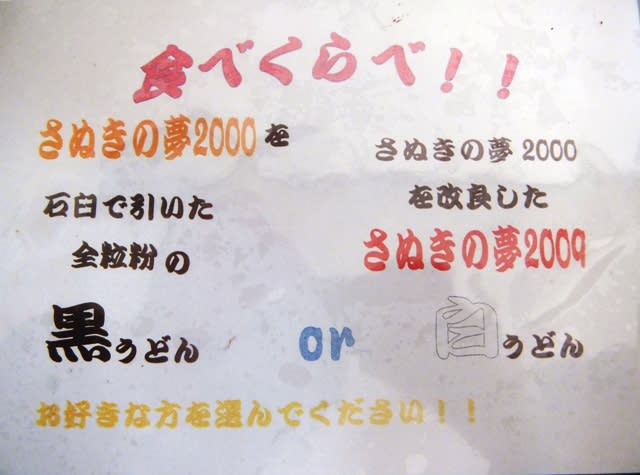 食べくらべ！！
さぬきの夢2000を
石臼で引いた
全粒粉の
黒うどん
or
さぬきの夢2000
を改良した
さぬきの夢2009
白うどん
お好きな方を選んでください！！